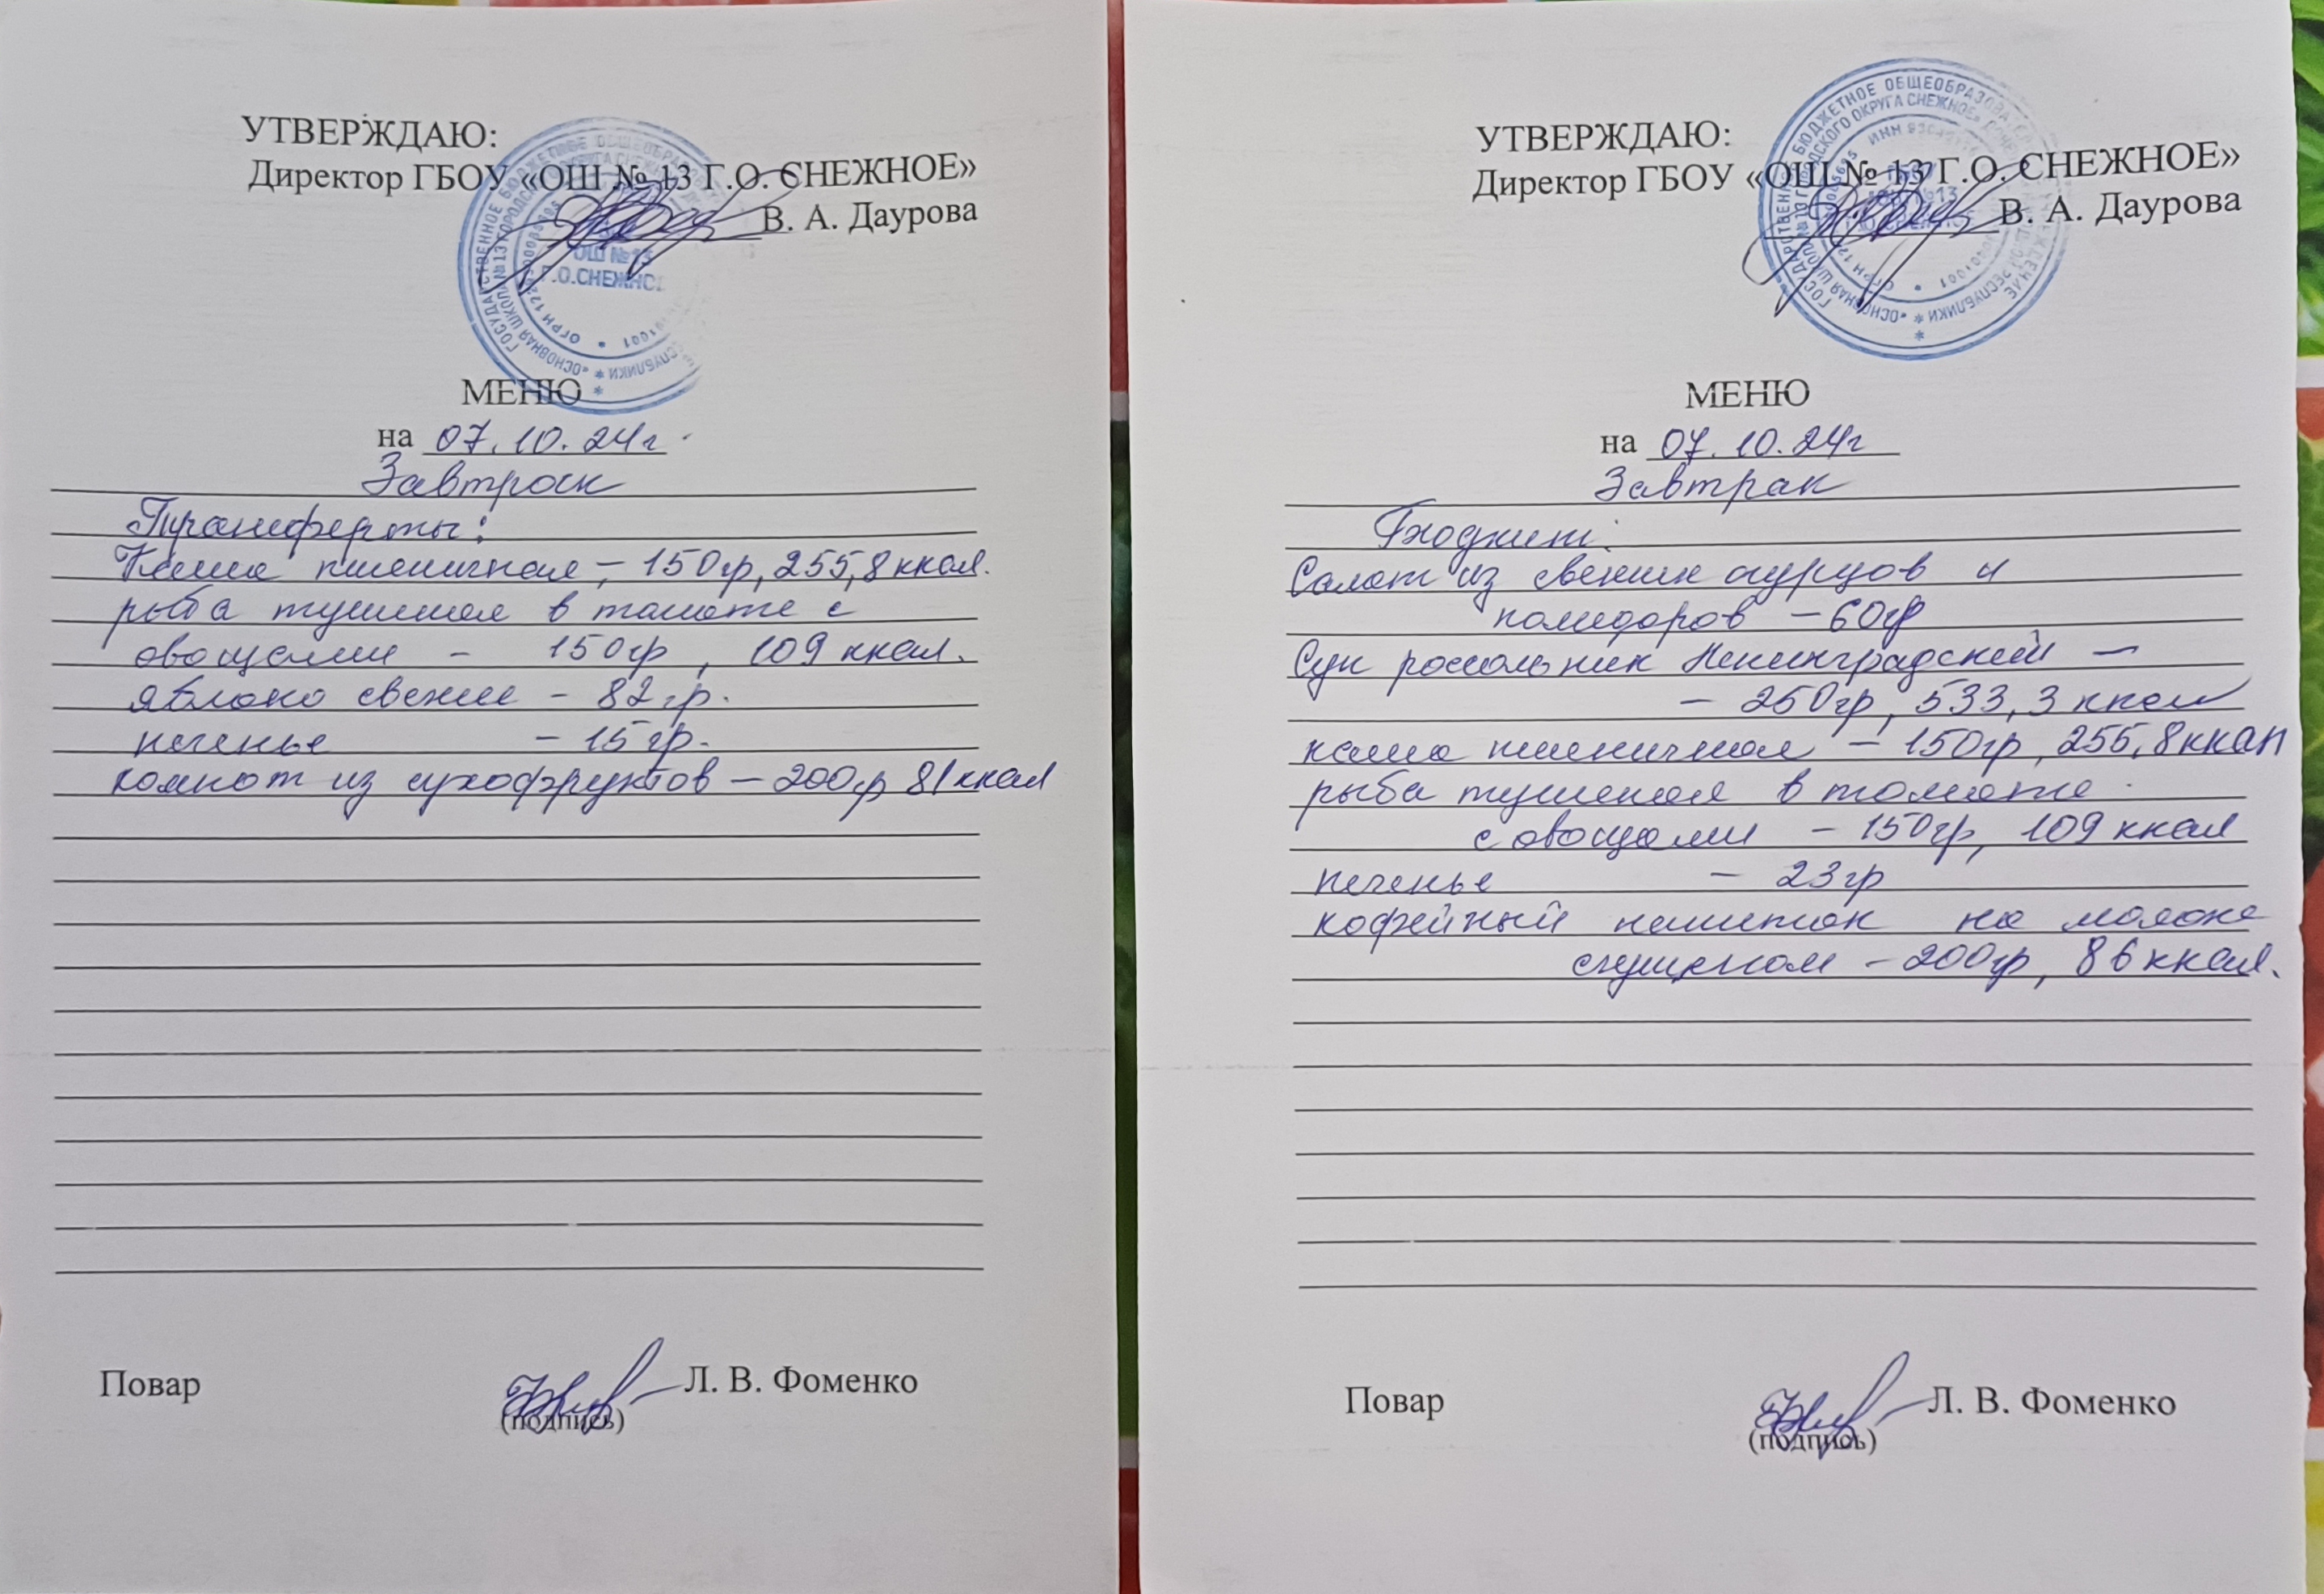 УТВЕРЖДАЮ:
Директор ГБОУ «ОШ № 13 Г.О. СНЕЖНОЕ»
В. А. Даурова
ОШ №13
МЕНЮ
на 07.10.24г
Завтрак
Трансферты:
Каша пшеничная - 150гр, 255,8 ккал.
рыба тушеная в томате с
овощами - 150гр, 109 ккал.
яблоко свежее - 82 гр.
печенье - 15 гр.
компот из сухофруктов - 200гр 81 ккал
Повар
Л. В. Фоменко
(подпись)
УТВЕРЖДАЮ:
Директор ГБОУ «ОШ № 13 Г.О. СНЕЖНОЕ»
В. А. Даурова
МЕНЮ
на 07.10.24г
Завтрак
Бюджет:
Салат из свежих огурцов и
помидоров - 60гр
Суп рассольник Ленинградский -
- 250гр, 533,3 ккал
каша пшеничная - 150гр, 255,8 ккал
рыба тушеная в томате
с овощами - 150гр, 109 ккал
печенье - 23гр
кофейный напиток на молоке
сгущеном - 200гр, 86 ккал.
Повар
Л. В. Фоменко
(подпись)